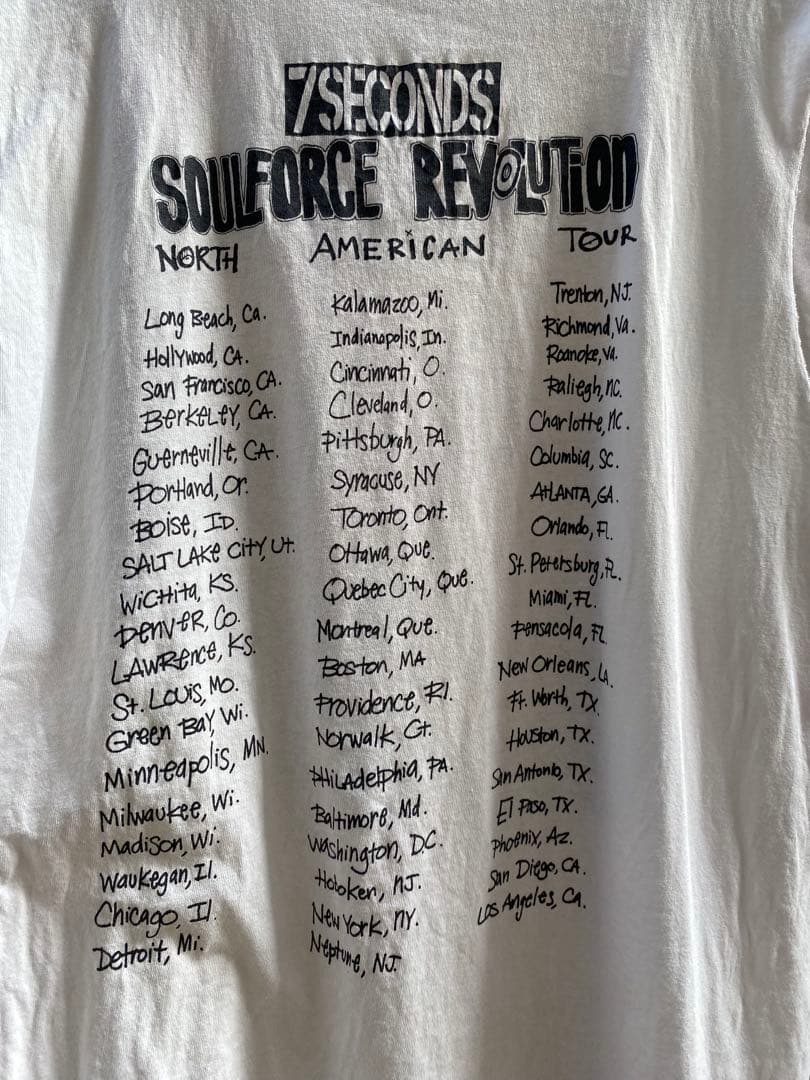 7SECONDS
SOULFORCE REVOLUTION
NORTH AMERICAN TOUR
Long Beach, Ca.
Hollywood, CA.
San Francisco, CA.
Berkeley, CA.
Guerneville, CA.
Portland, Or.
Boise, ID.
SALT LAKE CITY, Ut.
Wichita, KS.
Denver, Co.
LAWRence, KS.
St. Louis, Mo.
Green Bay, Wi.
Minneapolis, MN.
Milwaukee, Wi.
Madison, Wi.
Waukegan, Il.
Chicago, Il.
Detroit, Mi.
Kalamazoo, Mi.
Indianapolis, In.
Cincinnati, O.
Cleveland, O.
Pittsburgh, PA.
Syracuse, NY
Toronto, Ont.
Ottawa, Que.
Quebec City, Que.
Montreal, Que.
Boston, MA
Providence, RI.
Norwalk, Ct.
PHiLADelphia, PA.
Baltimore, Md.
Washington, D.C.
Hoboken, NJ.
New York, NY.
Neptune, NJ.
Trenton, NJ.
Richmond, Va.
Roanoke, Va.
Raliegh, NC.
Charlotte, NC.
Columbia, SC.
ATLANTA, GA.
Orlando, Fl.
St. Petersburg, FL.
Miami, FL.
Pensacola, FL
New Orleans, LA.
Ft. Worth, TX
Houston, TX.
San Antonio, TX.
El Paso, TX.
Phoenix, Az.
San Diego, CA.
Los Angeles, Ca.